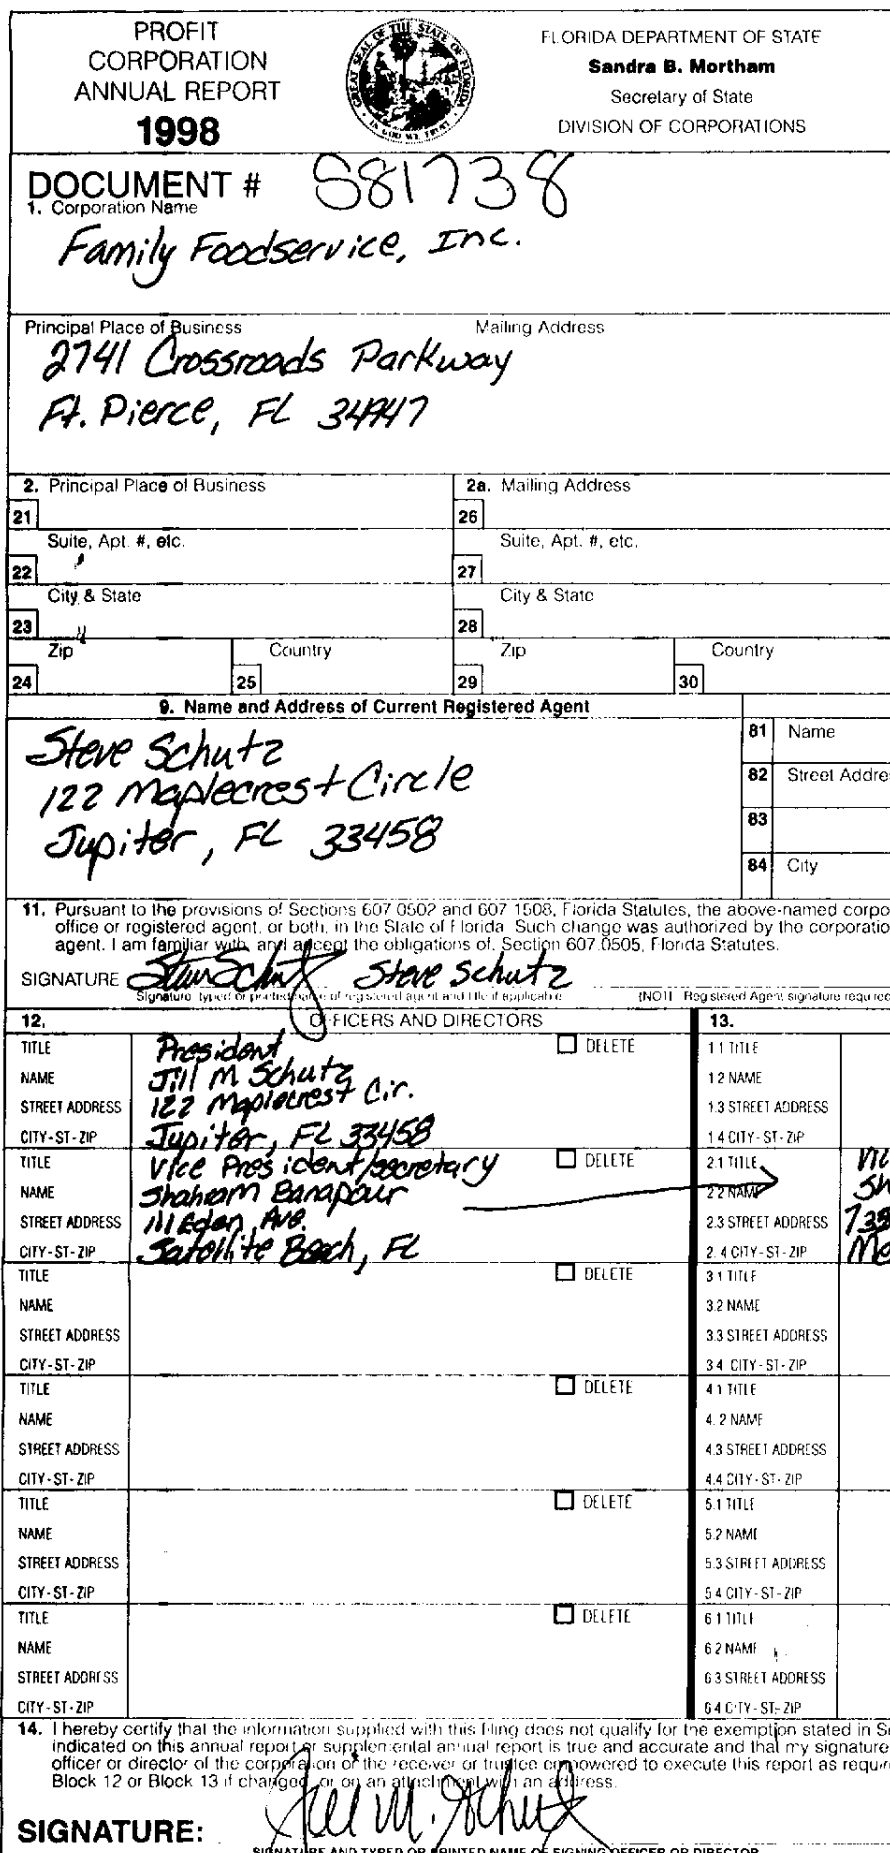 PROFIT
CORPORATION
ANNUAL REPORT
1998
GREAT SEAL OF THE STATE OF FLORIDA
IN GOD WE TRUST
FLORIDA DEPARTMENT OF STATE
Sandra B. Mortham
Secretary of State
DIVISION OF CORPORATIONS
DOCUMENT # S81738
1. Corporation Name
Family Foodservice, Inc.
Principal Place of Business Mailing Address
2741 Crossroads Parkway
Ft. Pierce, FL 34947
2. Principal Place of Business 2a. Mailing Address
21 26
Suite, Apt. #, etc. Suite, Apt. #, etc.
22 27
City & State City & State
23 28
Zip Country Zip Country
24 25 29 30
9. Name and Address of Current Registered Agent
Steve Schutz
122 Maplecrest Circle
Jupiter, FL 33458
81 Name
82 Street Addre
83
84 City
11. Pursuant to the provisions of Sections 607.0502 and 607.1508, Florida Statutes, the above-named corpo
office or registered agent, or both, in the State of Florida. Such change was authorized by the corporatio
agent. I am familiar with, and accept the obligations of, Section 607.0505, Florida Statutes.
SIGNATURE Steve Schutz Steve Schutz
Signature, typed or printed name of registered agent and title if applicable (NOTE Registered Agent signature required
12. OFFICERS AND DIRECTORS 13.
TITLE President DELETE 1.1 TITLE
NAME Jill M Schutz 1.2 NAME
STREET ADDRESS 122 Maplecrest Cir. 1.3 STREET ADDRESS
CITY-ST-ZIP Jupiter, FL 33458 1.4 CITY-ST-ZIP
TITLE Vice President/secretary DELETE 2.1 TITLE
NAME Shahram Banapour 2.2 NAME Sh
STREET ADDRESS 111 Eden Ave. 2.3 STREET ADDRESS 738
CITY-ST-ZIP Satellite Beach, FL 2.4 CITY-ST-ZIP Me
TITLE DELETE 3.1 TITLE
NAME 3.2 NAME
STREET ADDRESS 3.3 STREET ADDRESS
CITY-ST-ZIP 3.4 CITY-ST-ZIP
TITLE DELETE 4.1 TITLE
NAME 4.2 NAME
STREET ADDRESS 4.3 STREET ADDRESS
CITY-ST-ZIP 4.4 CITY-ST-ZIP
TITLE DELETE 5.1 TITLE
NAME 5.2 NAME
STREET ADDRESS 5.3 STREET ADDRESS
CITY-ST-ZIP 5.4 CITY-ST-ZIP
TITLE DELETE 6.1 TITLE
NAME 6.2 NAME
STREET ADDRESS 6.3 STREET ADDRESS
CITY-ST-ZIP 6.4 CITY-ST-ZIP
14. I hereby certify that the information supplied with this filing does not qualify for the exemption stated in Se
indicated on this annual report or supplemental annual report is true and accurate and that my signature
officer or director of the corporation or the receiver or trustee empowered to execute this report as requir
Block 12 or Block 13 if changed, or on an attachment with an address.
SIGNATURE: Jill M. Schutz
SIGNATURE AND TYPED OR PRINTED NAME OF SIGNING OFFICER OR DIRECTOR